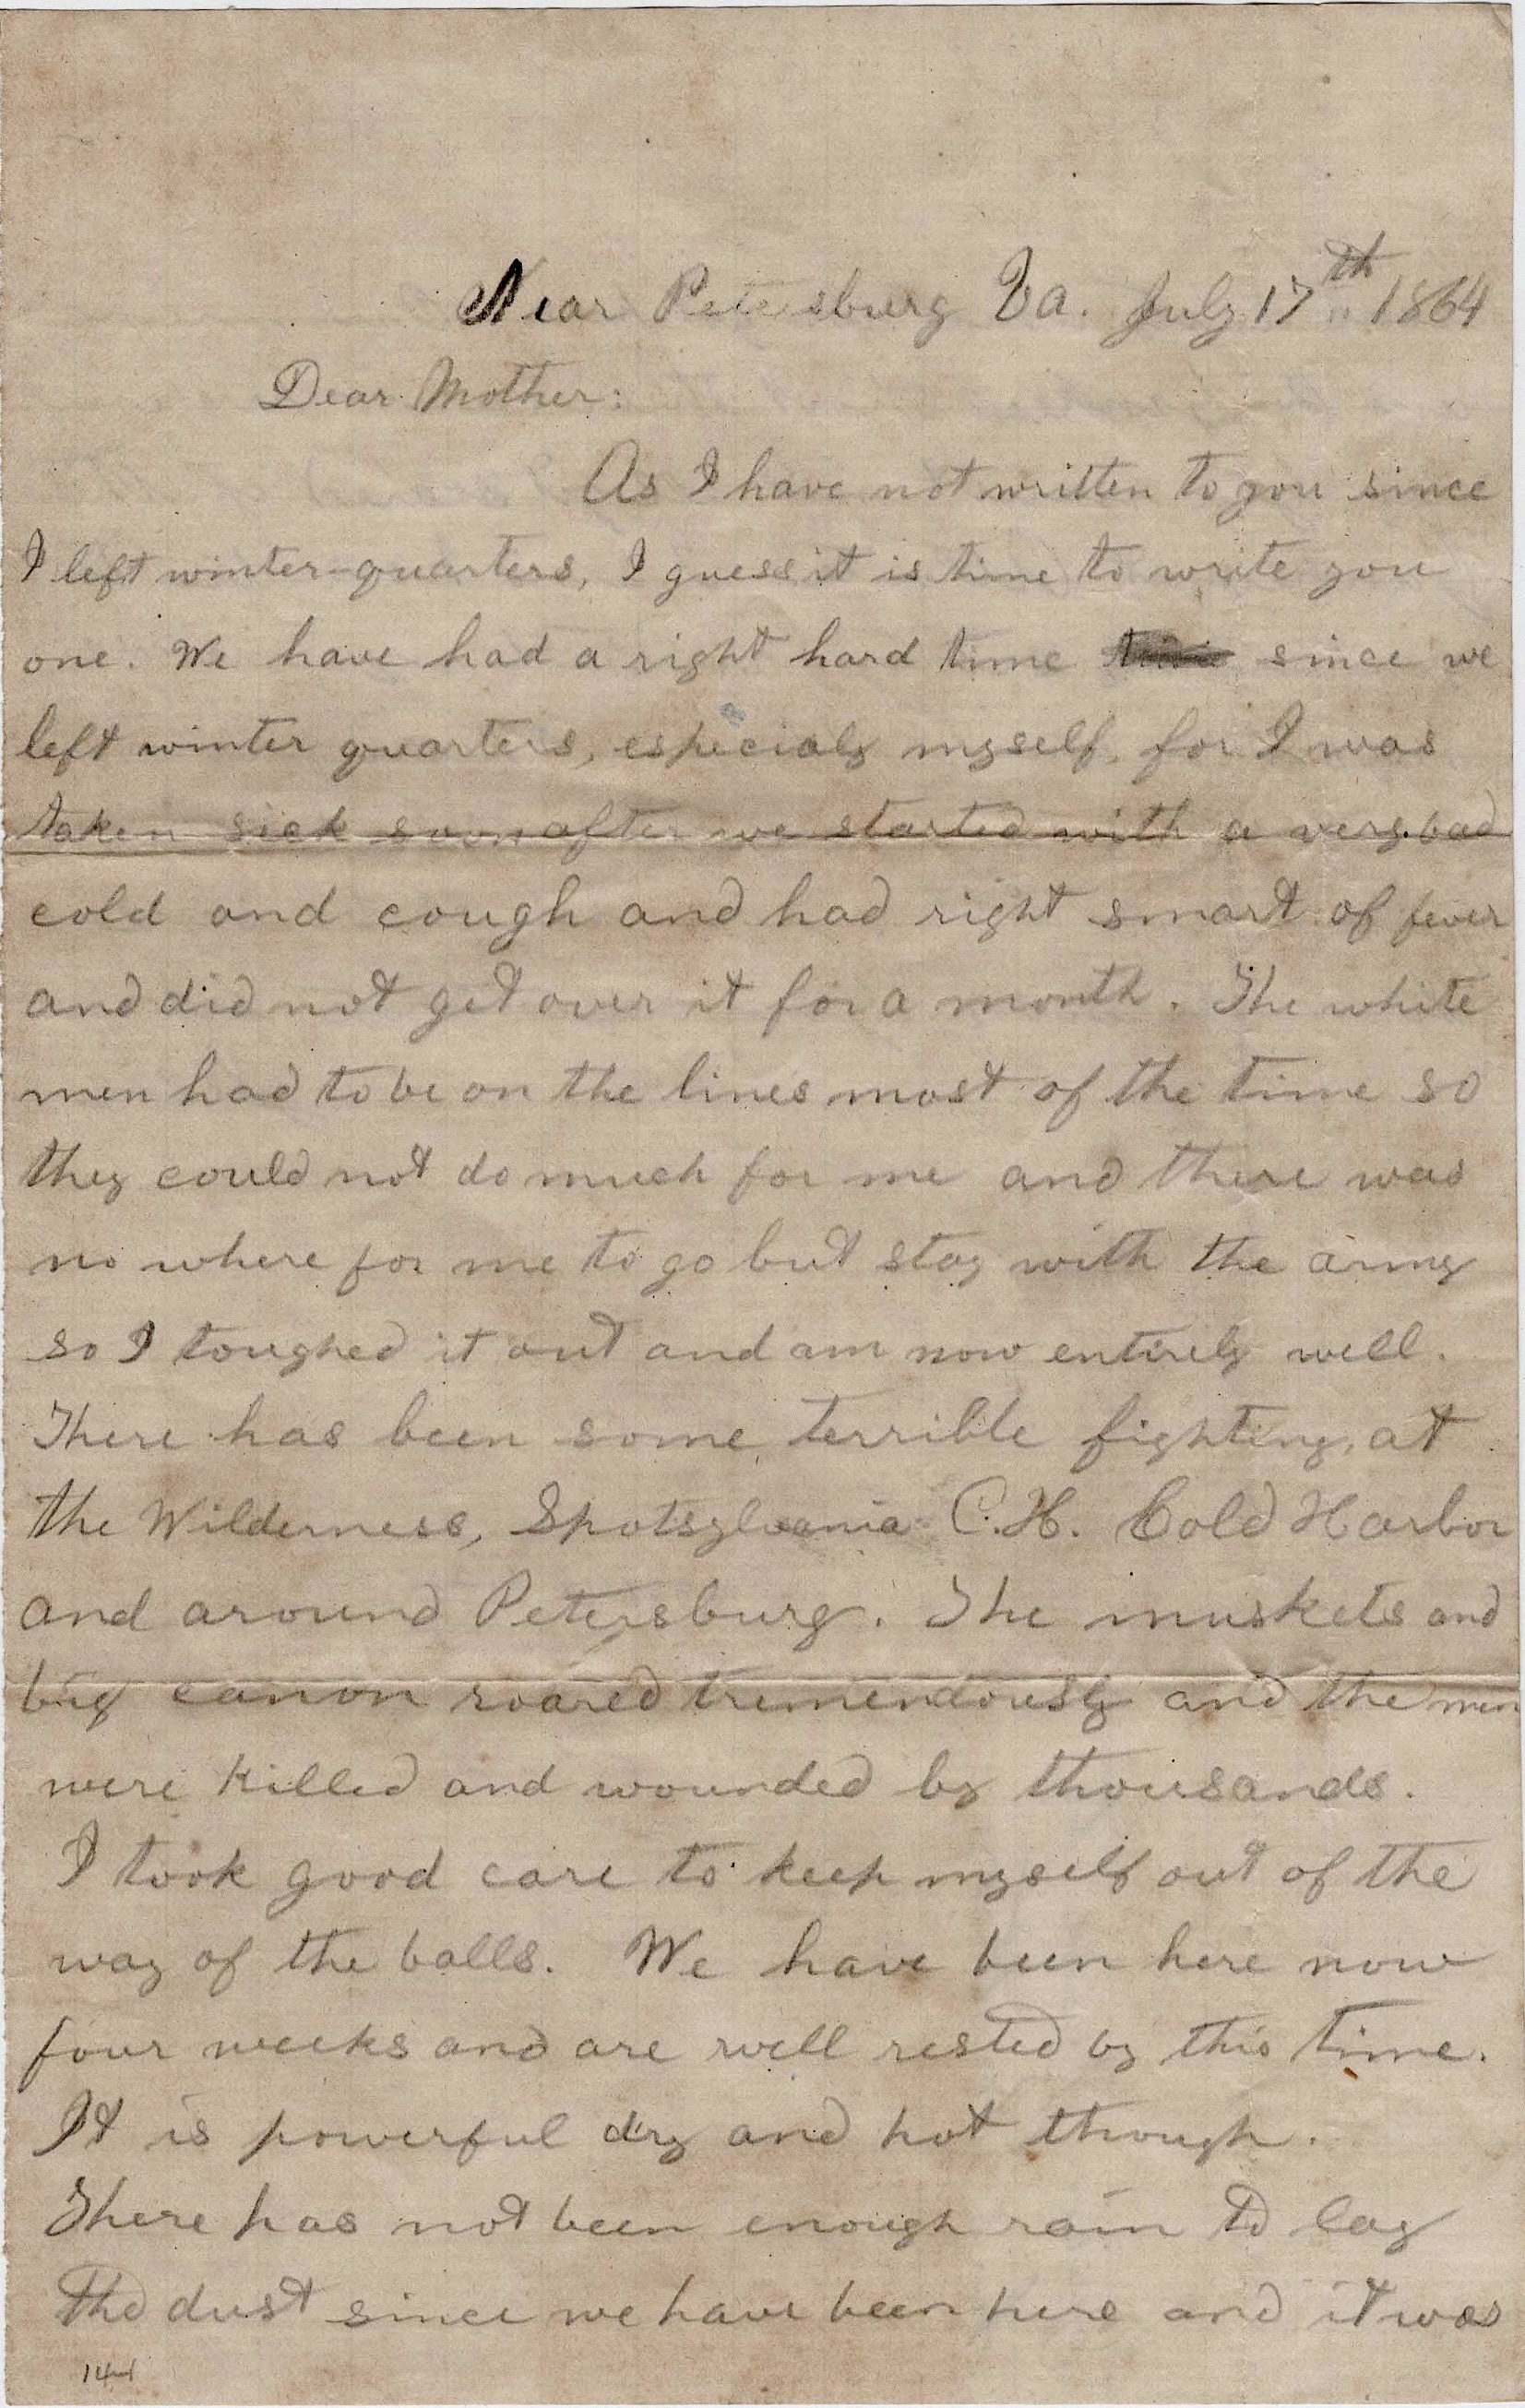 Near Petersburg Va. July 17th 1864
Dear Mother:
As I have not written to you since
I left winter-quarters, I guess it is time to write you
one. We have had a right hard time since we
left winter quarters, especialy myself, for I was
taken sick soon after we started with a very bad
cold and cough and had right smart of fever
and did not get over it for a month. The white
men had to be on the lines most of the time so
they could not do much for me and there was
no where for me to go but stay with the army
so I toughed it out and am now entirely well.
There has been some terrible fighting, at
the Wilderness, Spotsylvania C.H. Cold Harbor
and around Petersburg. The muskets and
big canon roared tremendously and the men
were killed and wounded by thousands.
I took good care to keep myself out of the
way of the balls. We have been here now
four weeks and are well rested by this time.
It is powerful dry and hot though.
There has not been enough rain to lay
the dust since we have been here and it was
144